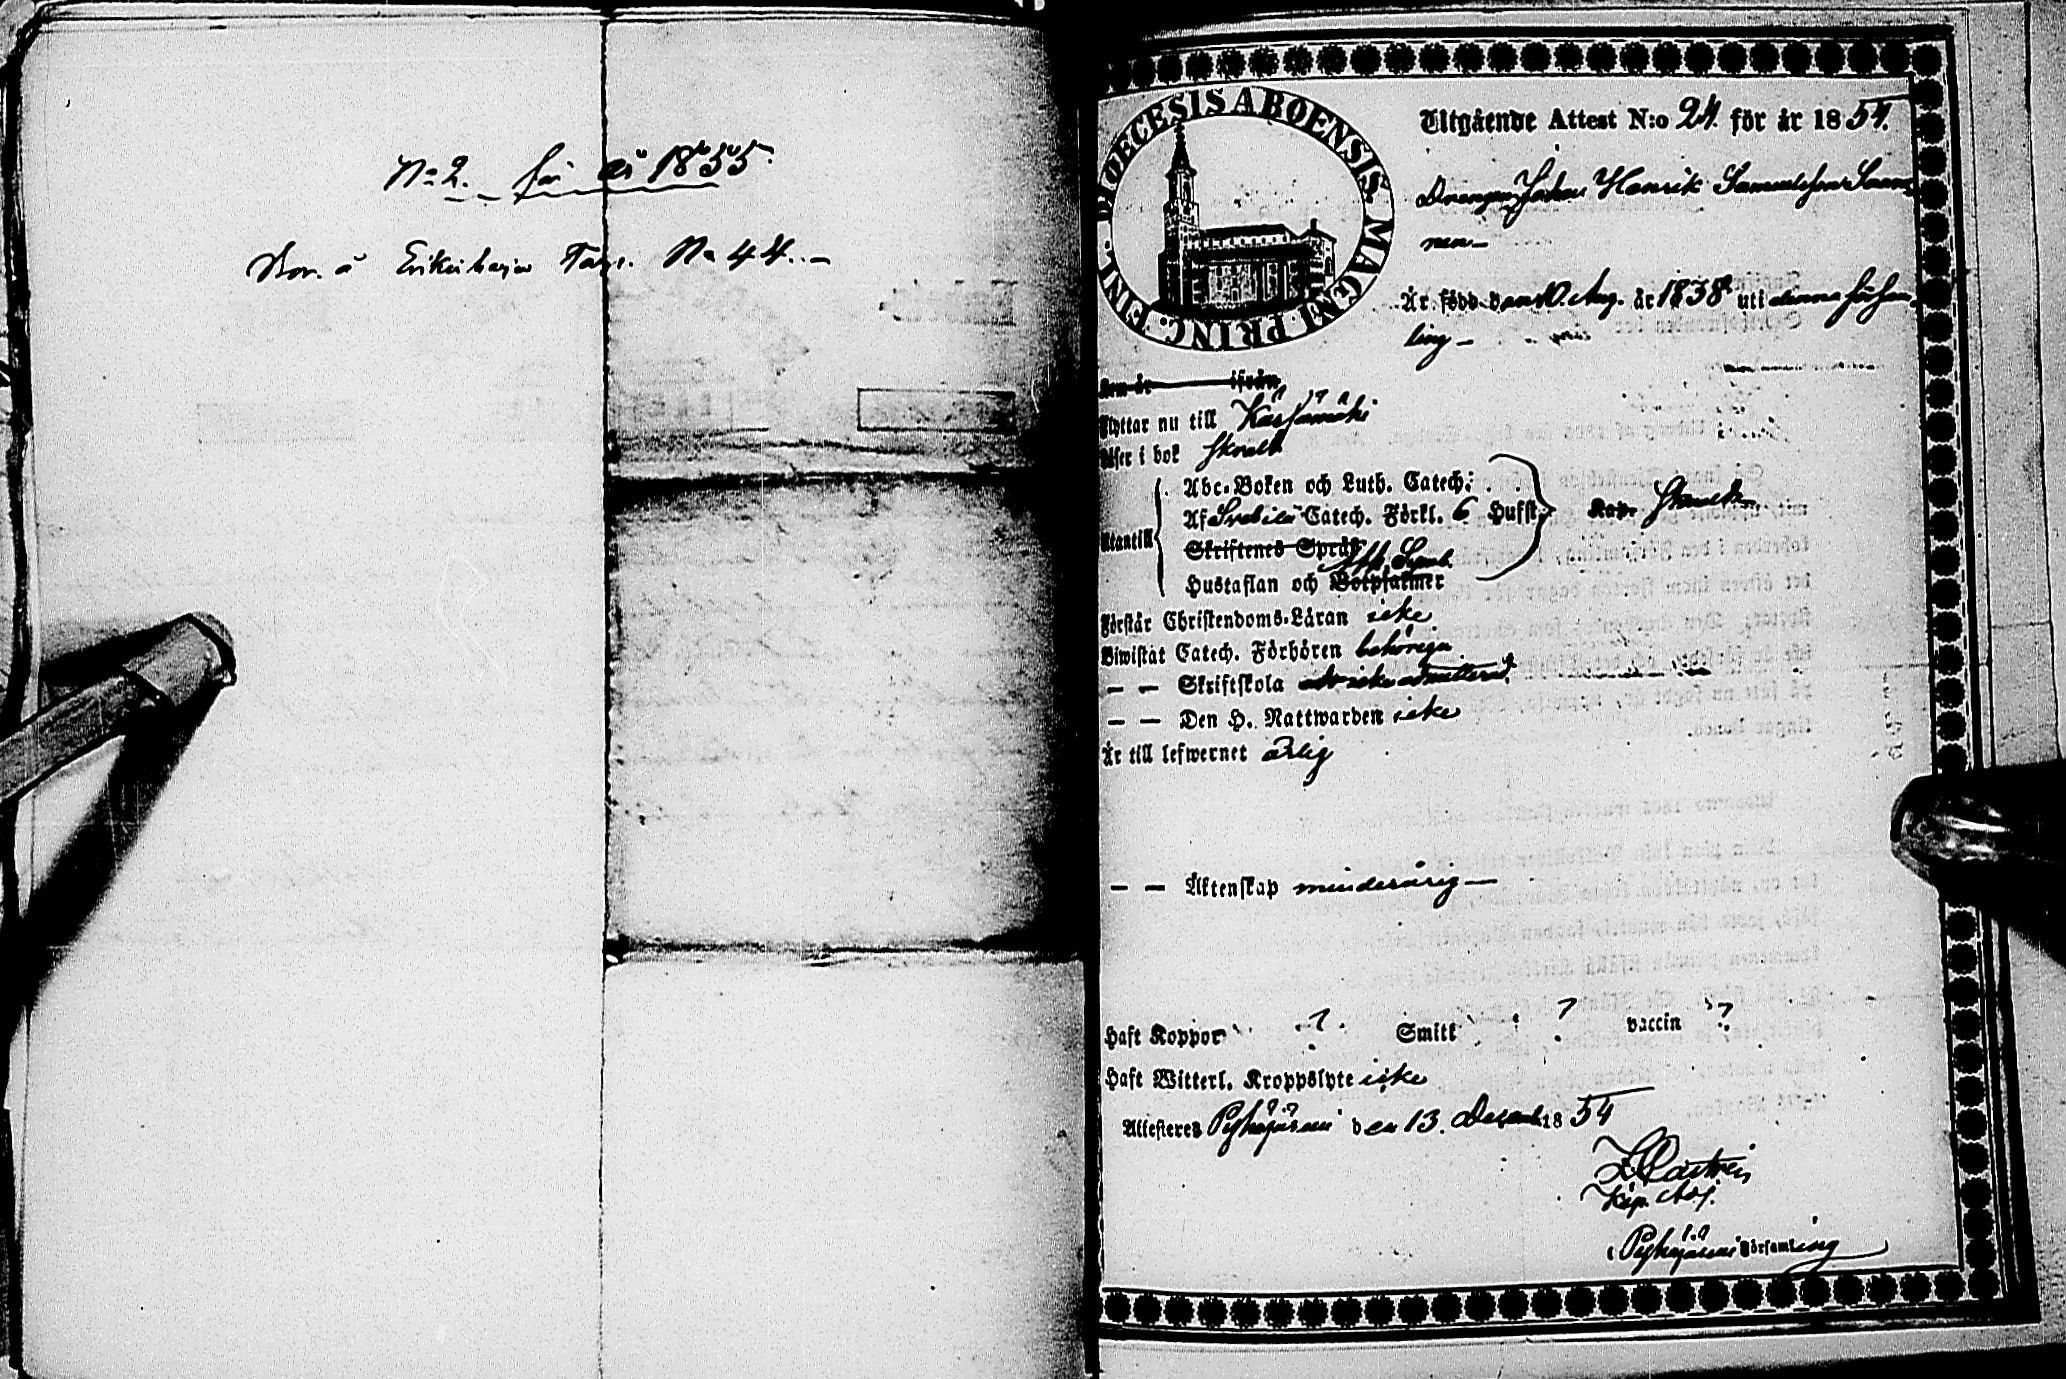 No 2. för år 1855.
Bor. å Erikiharju Torp. No 44.
DIOECESIS ABOENSIS. MAGNI PRINC. FINL.
Utgående Attest N:o 24. för år 1854.
Drengen Johan Henrik Samuelsson Saari-
nen
Är född den 10. Aug. år 1838 uti denna försam-
ling
Kom år ifrån
Flyttar nu till Kärsämäki
Läser i bok
Utantill
Abc-Boken och Luth. Catech:
Af Svebilii Catech. Förkl. 6 Hufst.
Skriftenes Språk
Hustaflan och Botpsalmer
Förstår Christendoms-Läran icke
Biwistat Catech. Förhören behörigen
— — Skriftskola icke admitterad.
— — Den H. Nattwarden icke
Är till lefwernet ärlig
— — Äktenskap minderårig
Haft Koppor ? Smitt ? vaccin ?
Haft Witterl. Kroppslyte icke
Attesteres Pyhäjärvi den 13. Decemb. 1854
Kap. Adj.
i Pyhäjärvi Församling